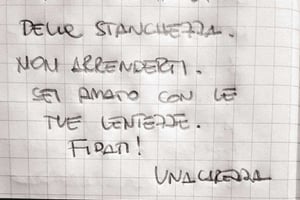 DELLE STANCHEZZA.
NON ARRENDERTI.
SEI AMATO CON LE
TUE LENTEZZE.
FIDATI!
UNA CAREZZA